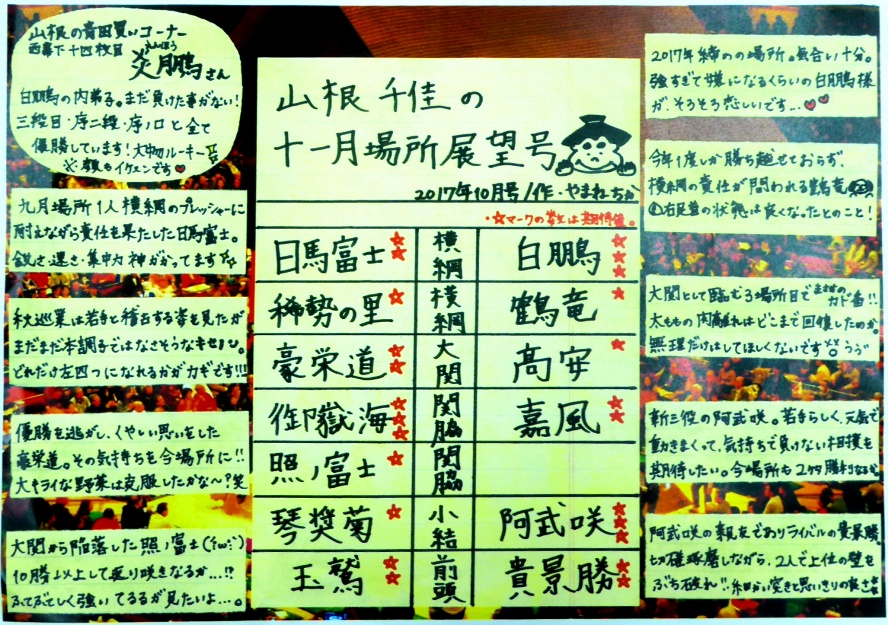 山根の青田買いコーナー
西幕下十四枚目
えんほう
炎鵬さん
白鵬の内弟子。まだ負けた事がない!
三段目・序二段・序ノ口と全て
優勝しています!大物ルーキー
※顔もイケメンです♥
九月場所1人横綱のプレッシャーに
耐えながら責任を果たした日馬富士。
鋭さ・速さ・集中力 神がかってます
秋巡業は若手と稽古する姿を見たが
まだまだ本調子ではなさそうなキセノン。
どれだけ左四つになれるかがカギです!!!
優勝を逃がし、くやしい思いをした
豪栄道。その気持ちを今場所に!!
大キライな野菜は克服したかな〜?笑
大関から陥落した照ノ富士(´;ω;`)
10勝以上して返り咲きなるか...!?
ふてぶてしく強いてるるが見たいよ...。
山根千佳の
十一月場所展望号
2017年10月号/作・やまねちか
・☆マークの数は期待値。
日馬富士☆☆ 横綱 白鵬☆☆☆
稀勢の里☆ 横綱 鶴竜☆
豪栄道☆☆ 大関 高安☆
御嶽海☆☆☆ 関脇 嘉風☆☆
照ノ富士☆ 関脇
琴奨菊☆ 小結 阿武咲☆☆☆
玉鷲☆☆ 前頭 貴景勝☆☆
2017年締めの場所。気合い十分。
強すぎて嫌になるくらいの白鵬様
が、そろそろ恋しいです...♥♥
今年1度しか勝ち越せておらず、
横綱の責任が問われる鶴竜
右足首の状態は良くなったとのこと!
大関として臨む3場所目でまさかの
カド番!!
太ももの肉離れはどこまで回復したのか。
無理だけはしてほしくないです。うぅ
新三役の阿武咲。若手らしく、元気で
動きまくって、気持ちで負けない相撲を
期待したい。今場所も2ケタ勝利なるか
阿武咲の親友でありライバルの貴景勝。
切磋琢磨しながら、2人で上位の壁を
ぶち破れ!!細かい突きと思いきりの良さ